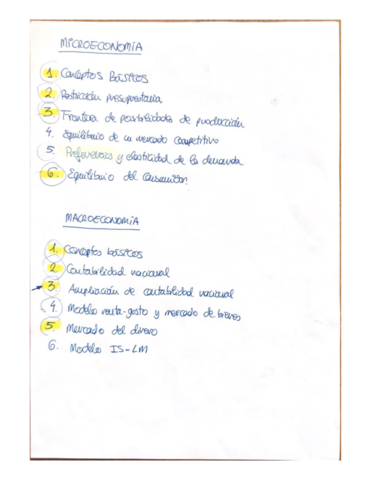 MICROECONOMÍA
1 Conceptos Básicos
2. Restricción presupuestaria
3. Frontera de posibilidades de producción
4. Equilibrio de un mercado competitivo
5. Preferencias y elasticidad de la demanda
6. Equilibrio del consumidor
MACROECONOMÍA
1. Conceptos básicos
2 Contabilidad nacional
3 Ampliación de contabilidad nacional
4. Modelo renta-gasto y mercado de bienes
5 Mercado del dinero
6. Modelo IS-LM